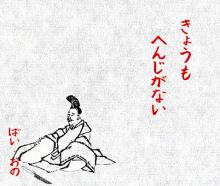 きょうも
へんじがない
ばい おの